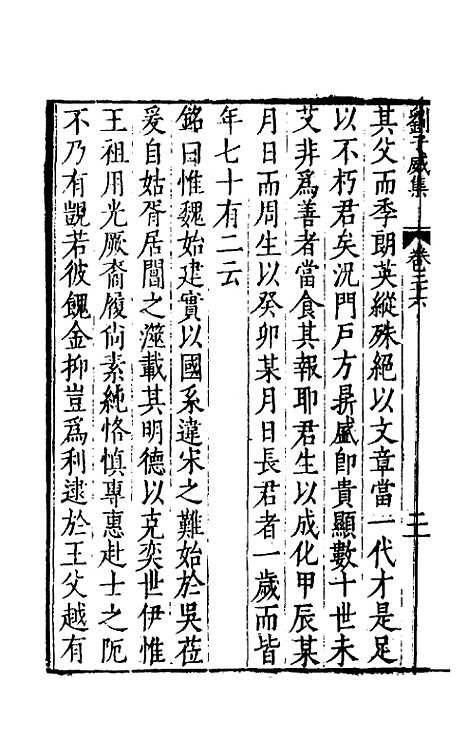 劉子威集 卷三十六 二
其父而季朗英縱殊絕以文章當一代才是足
以不朽君矣況門戶方昇盛即貴顯數十世未
艾非為善者當食其報耶君生以成化甲辰某
月日而周生以癸卯某月日長君者一歲而皆
年七十有二云
銘曰惟魏始建實以國系違宋之難始於吳莅
爰自姑胥居閶之澨載其明德以克奕世伊惟
王祖用光厥裔履尚素純恪慎專惠赴士之阨
不乃有覬若彼餽金抑豈為利逮於王父越有